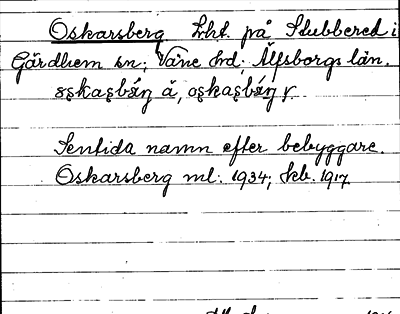 Oskarsberg Lht. på Stubbered i
Gärdhem sn; Väne hd; Älfsborgs län.
Sentida namn efter bebyggare.
Oskarsberg ml. 1934; Jkb. 1917